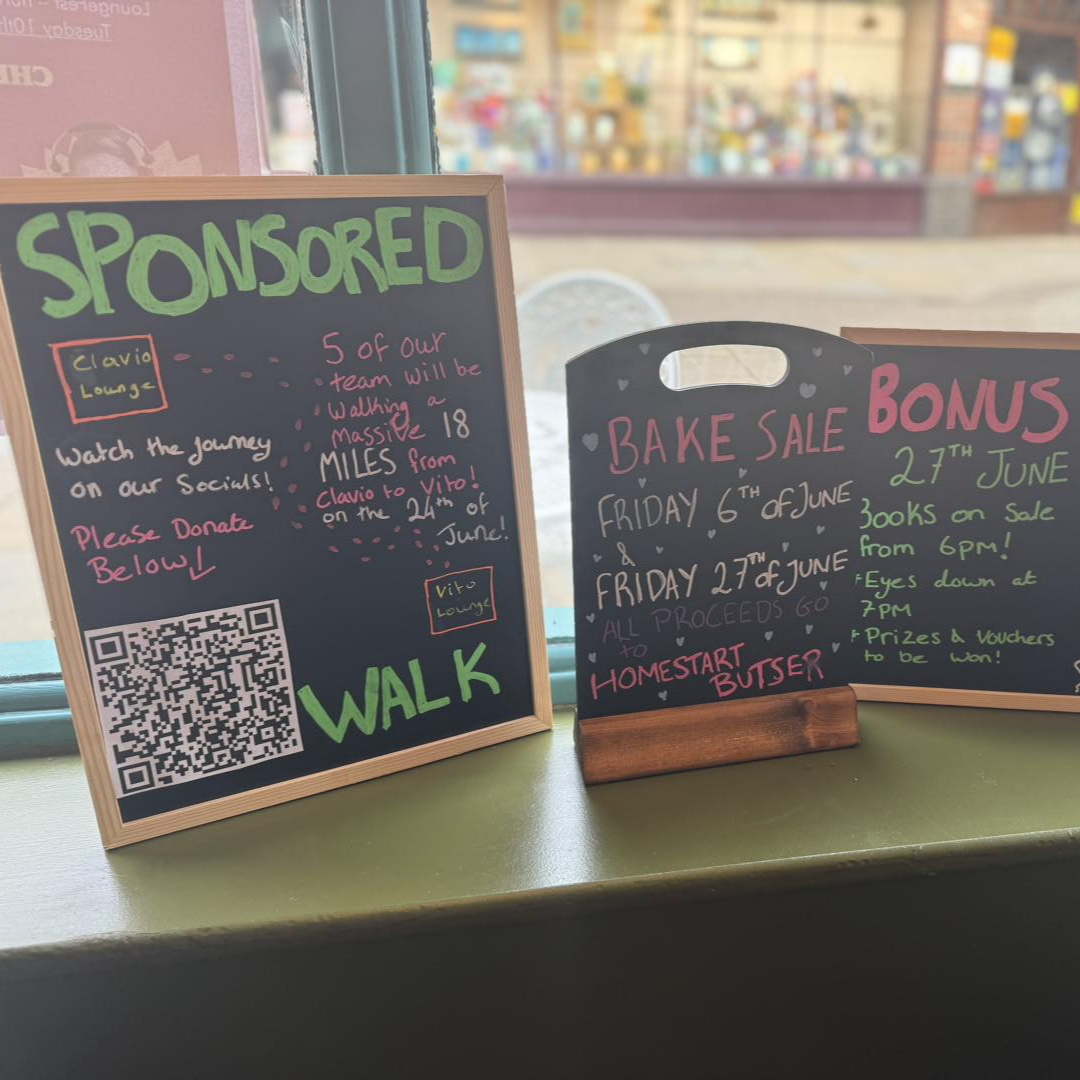 LoungeFest
Tuesday 10th
SPONSORED
Clavio
Lounge
Watch the Journey
on our Socials!
Please Donate
Below!
5 of our
team will be
Walking a
Massive 18
MILES from
Clavio to Vito!
on the 24th of
June!
Vito
Lounge
WALK
BAKE SALE
FRIDAY 6TH of JUNE
&
FRIDAY 27TH of JUNE
ALL PROCEEDS GO
to
HOMESTART
BUTSER
BONUS
27TH JUNE
Books on Sale
from 6pm!
Eyes down at
7PM
Prizes & Vouchers
to be won!